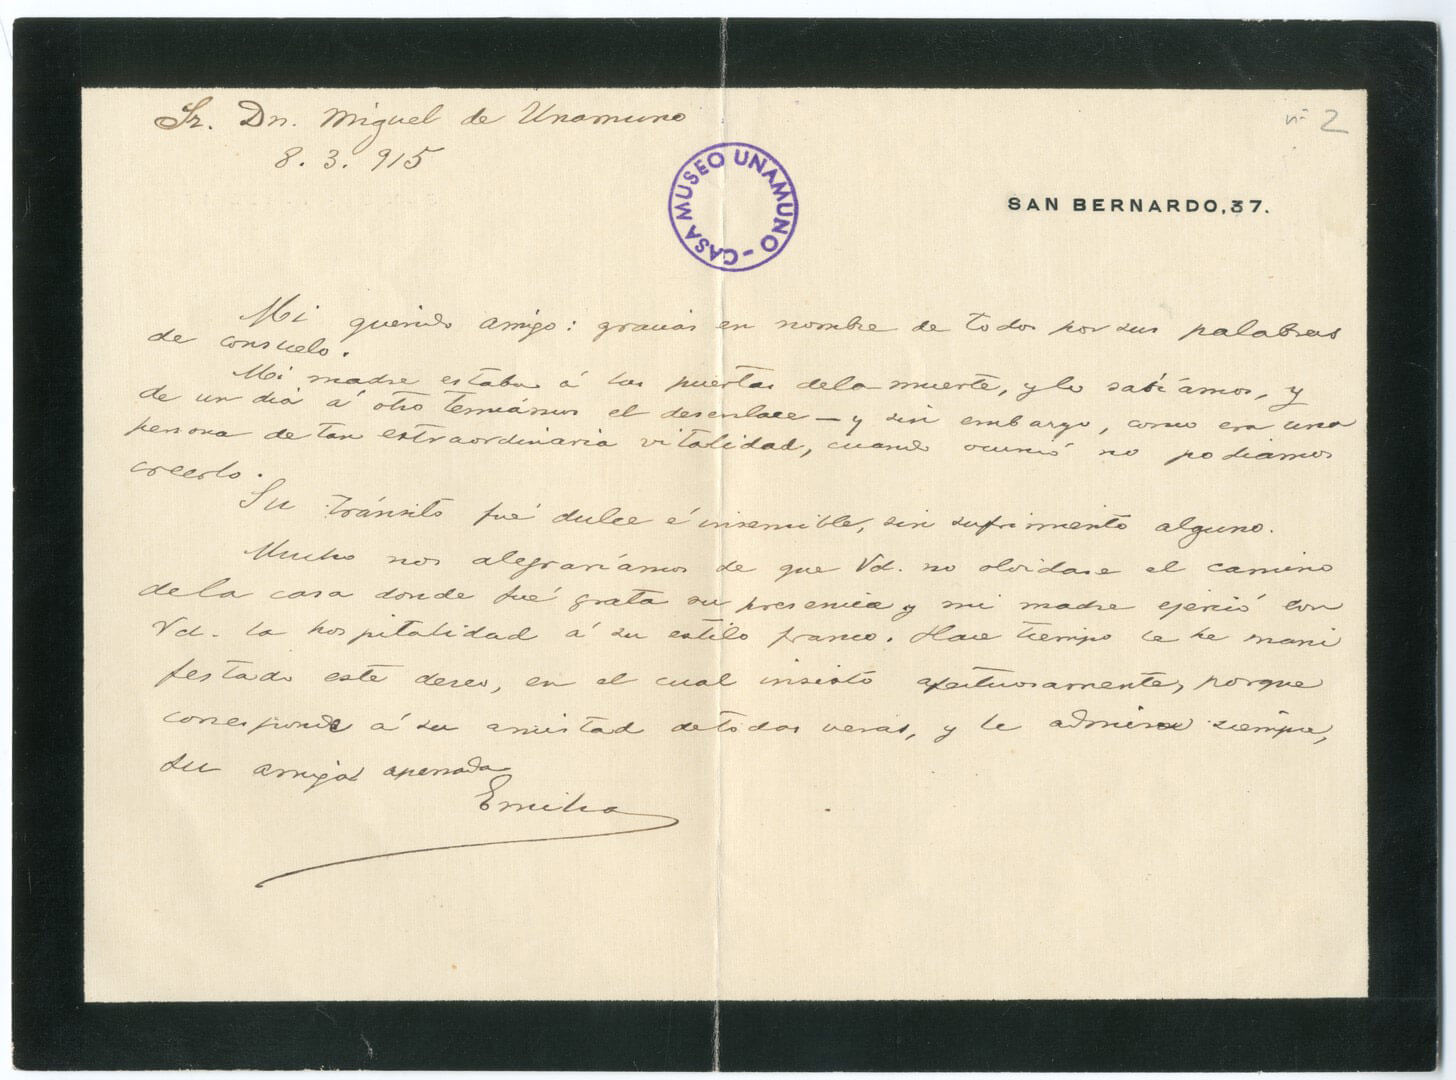 Sr. Dn. Miguel de Unamuno
8. 3. 915
nº 2
CASA MUSEO UNAMUNO -
SAN BERNARDO, 37.
Mi querido amigo: gracias en nombre de todos por sus palabras
de consuelo.
Mi madre estaba á las puertas dela muerte, y lo sabíamos, y
de un dia á otro temíamos el desenlace — y sin embargo, como era una
persona de tan extraordinaria vitalidad, cuando ocurrió no podiamos
creerlo.
Su tránsito fué dulce é insensible, sin sufrimiento alguno.
Mucho nos alegraríamos de que Vd. no olvidase el camino
dela casa donde fué grata su presencia y mi madre ejerció con
Vd. la hospitalidad á su estilo franco. Hace tiempo le he mani
festado este deseo, en el cual insisto afectuosamente, porque
corresponde á su amistad detodas veras, y le admira siempre,
su amiga apenada
Emilia